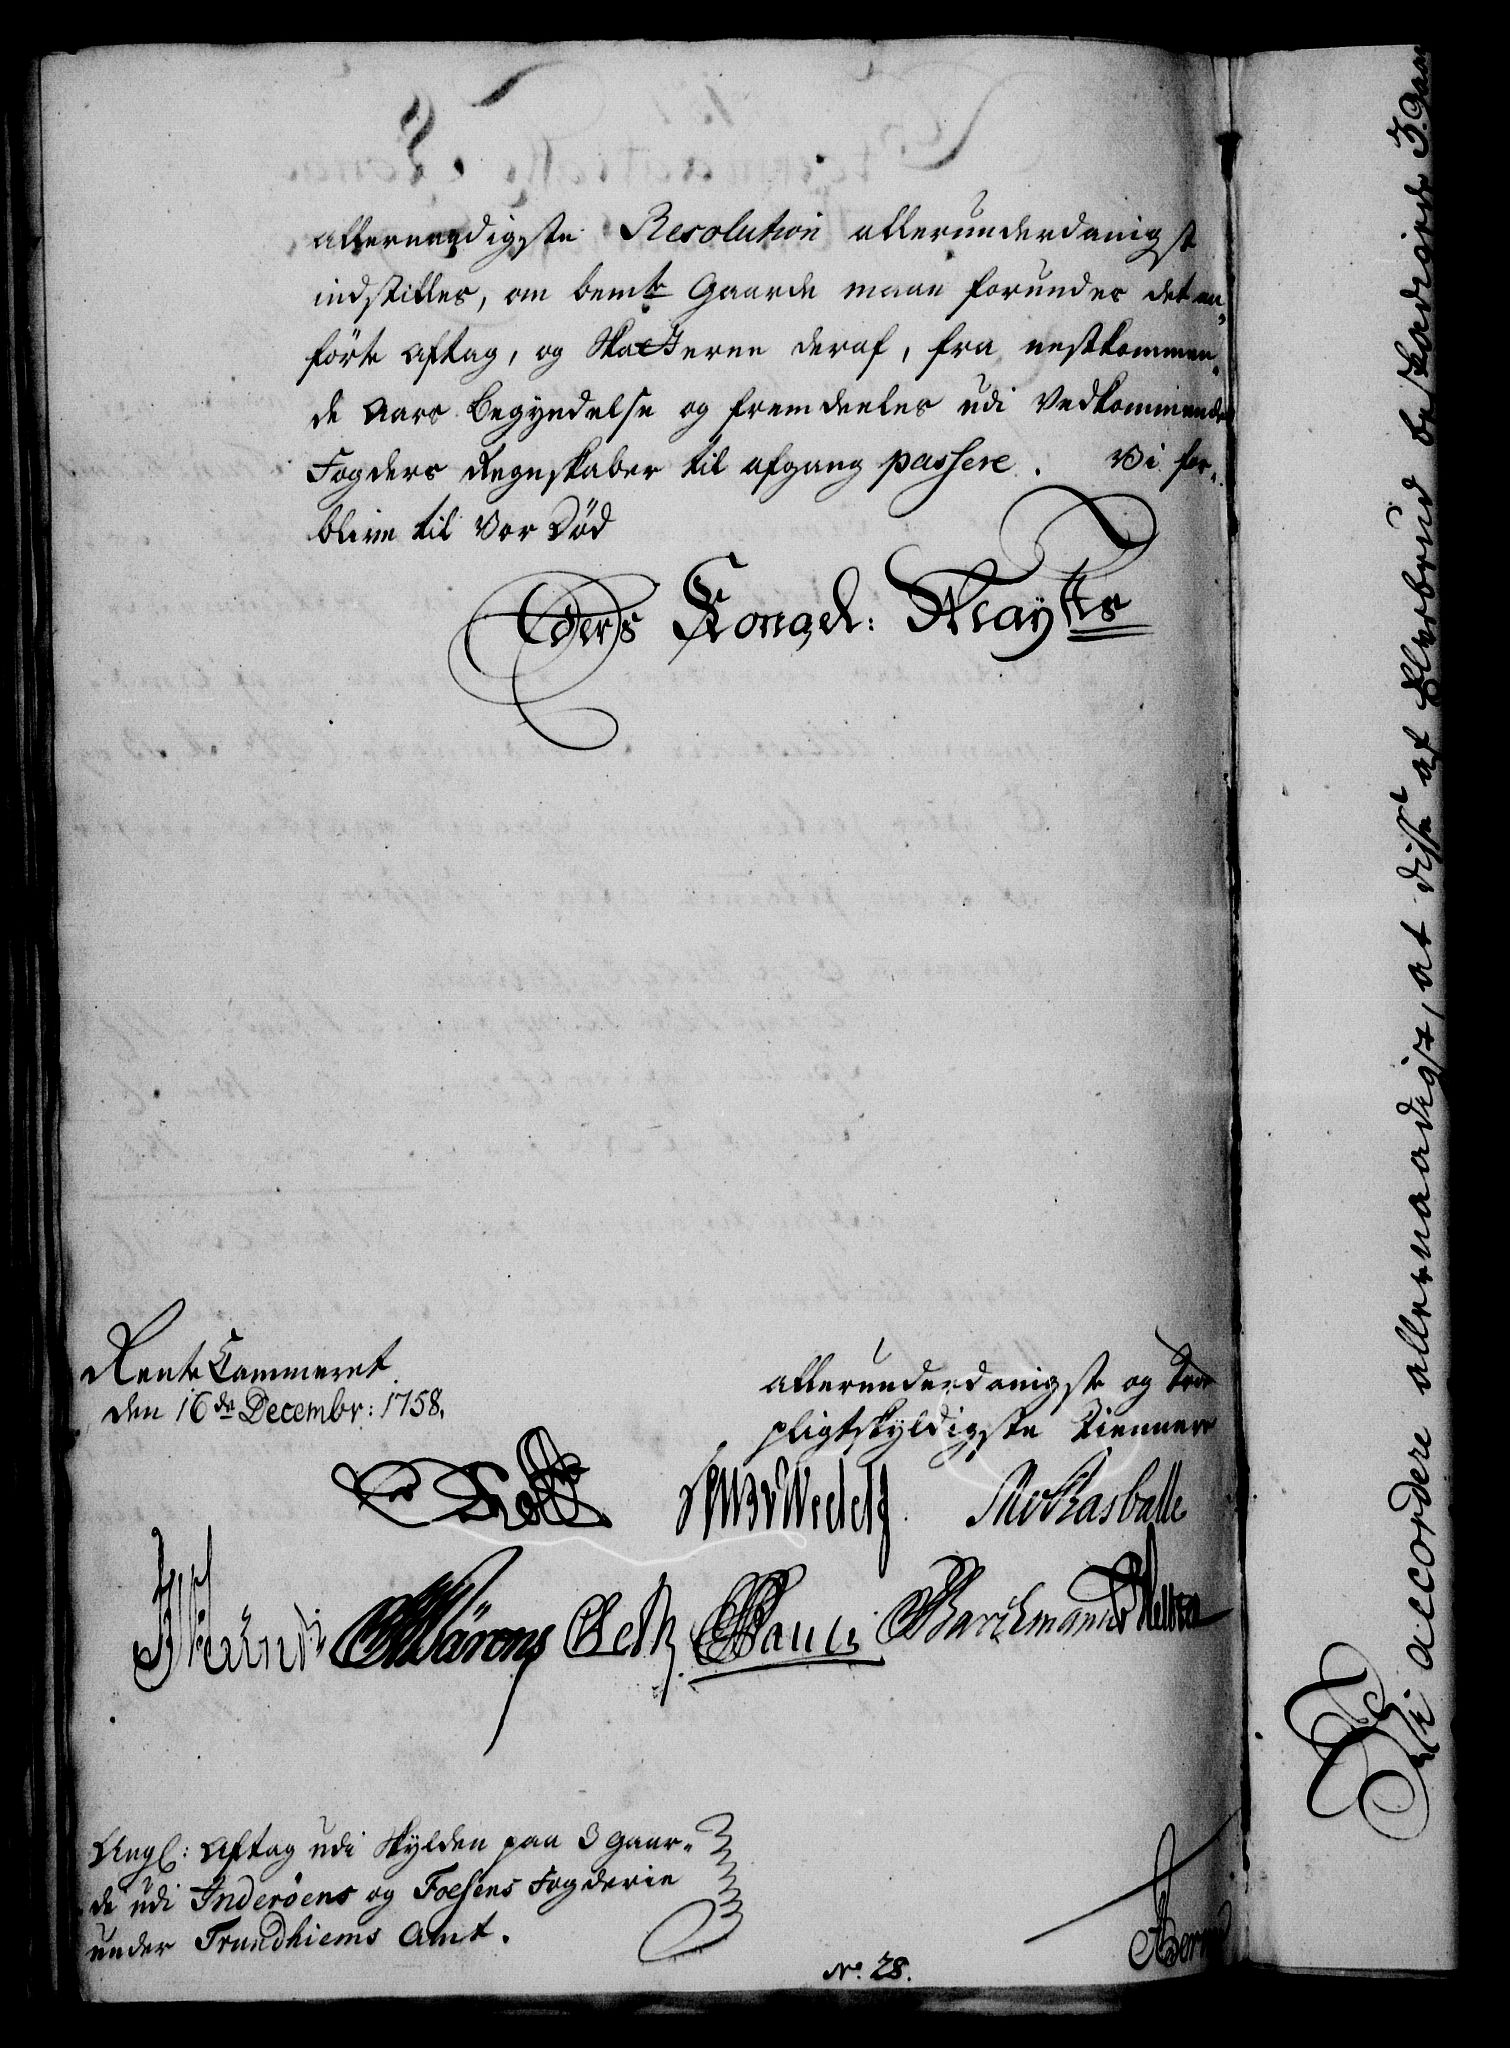 allernaadigste Resolution allerunderdanigst
indstilles, om bemte Gaarde maae forundes det an„
förte Aftag, og Skatterne deraf, fra nestkommen„
de Aars Begyndelse og fremdeeles udi Vedkommende
Fogders Regnskaber til afgang passere. Vi for„
blive til Vor Död
Eders Kongel: Mayts
Rente Cammeret
den 16de Decembr: 1758.
allerunderdanigste og Troe
pligtskyldigste Tiennere
Holck
Wedel
Rasballe
Pauli Barchmann
Ang: Aftag udi Skylden paa 3 Gaar„
de udi Inderöens og Foesens Fogderie
under Trundhiems Amt.
No. 28.
Vi accordere allernaadigst, at disse af Elvebrud beskadigede 3 Gaar